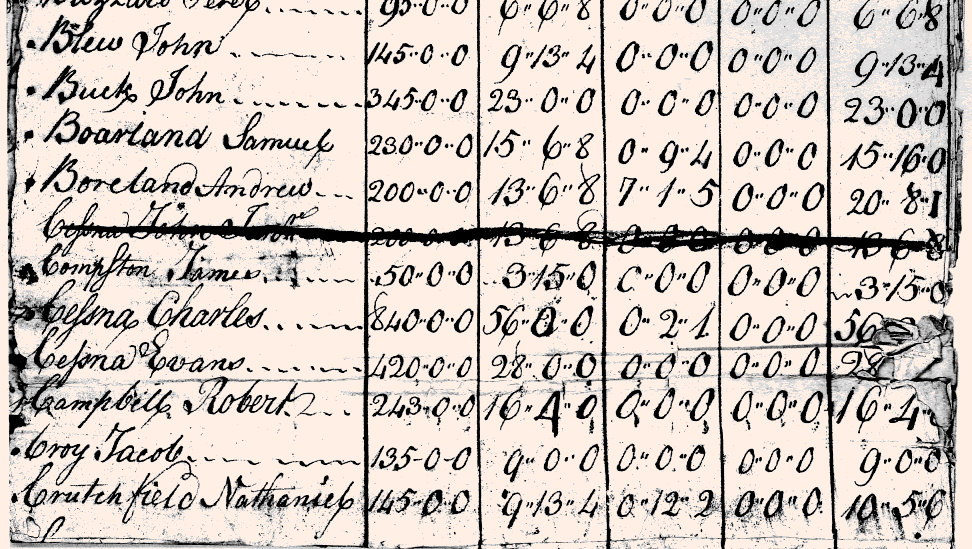 95-0-0 6"6"8 0"0"0 0"0"0 6"6"8
Blew John 145-0-0 9"13"4 0"0"0 0"0"0 9"13"4
Buck John 345-0-0 23"0"0 0"0"0 0"0"0 23"0"0
Boarland Samuel 230-0-0 15"6"8 0"9"4 0"0"0 15"16"0
Boreland Andrew 200-0-0 13"6"8 7"1"5 0"0"0 20"8"1
Cessna John 200-0-0 13"6"8 0"0"0 0"0"0 13"6"8
Compston James 50-0-0 3"15"0 0"0"0 0"0"0 3"15"0
Cessna Charles 840-0-0 56"0"0 0"2"1 0"0"0 56
Cessna Evans 420-0-0 28"0"0 0"0"0 0"0"0 28
Campbell Robert 243-0-0 16"4"0 0"0"0 0"0"0 16"4"
Croy Jacob 135-0-0 9"0"0 0"0"0 0"0"0 9"0"0
Crutchfield Nathaniel 145-0-0 9"13"4 0"12"2 0"0"0 10"5"6